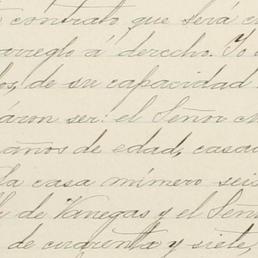 contrato, que será c
arreglo á derecho. Yo
dos, de su capacidad
áron ser: el Señor M
años de edad, casa
la casa número seis
de Vanegas y el Seño
de cincuenta y siete,